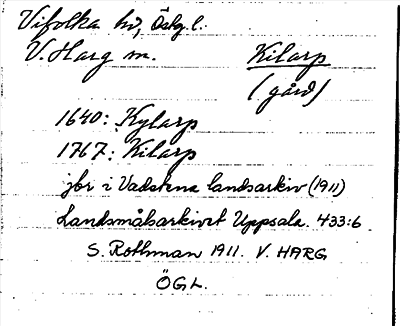 Vifolka hd, Östg. l.
V. Harg sn. Kilarp
(gård)
1640: Kylarp
1767: Kilarp
jbr i Vadstena landsarkiv (1911)
Landsmålsarkivet Uppsala. 433:6
S. Rothman 1911. V. HARG
ÖGL.